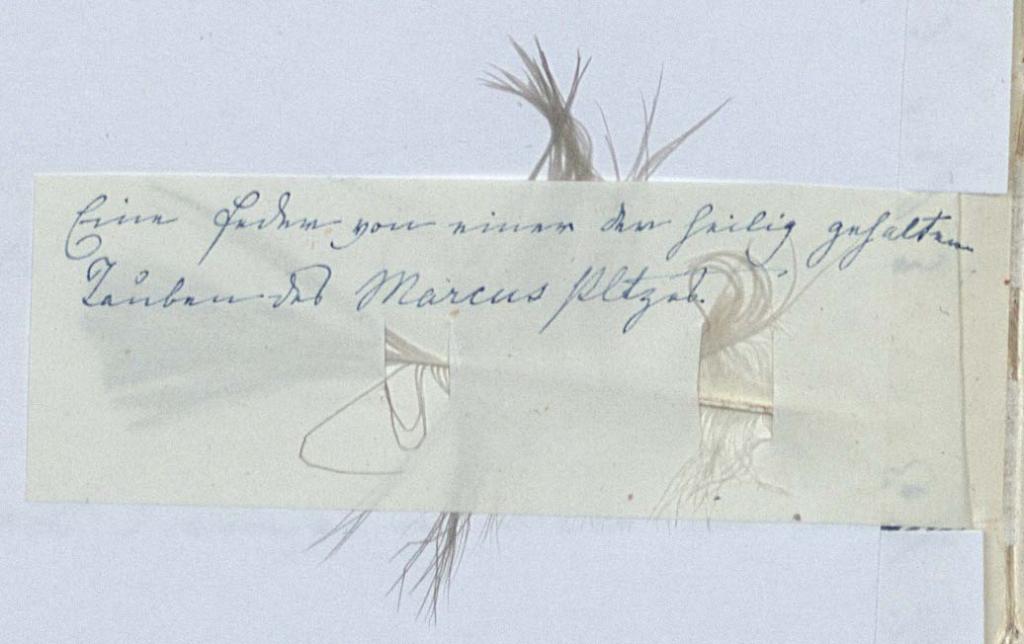 Eine Feder von einer der heilig gehalten
Tauben des Marcus Pltzes.